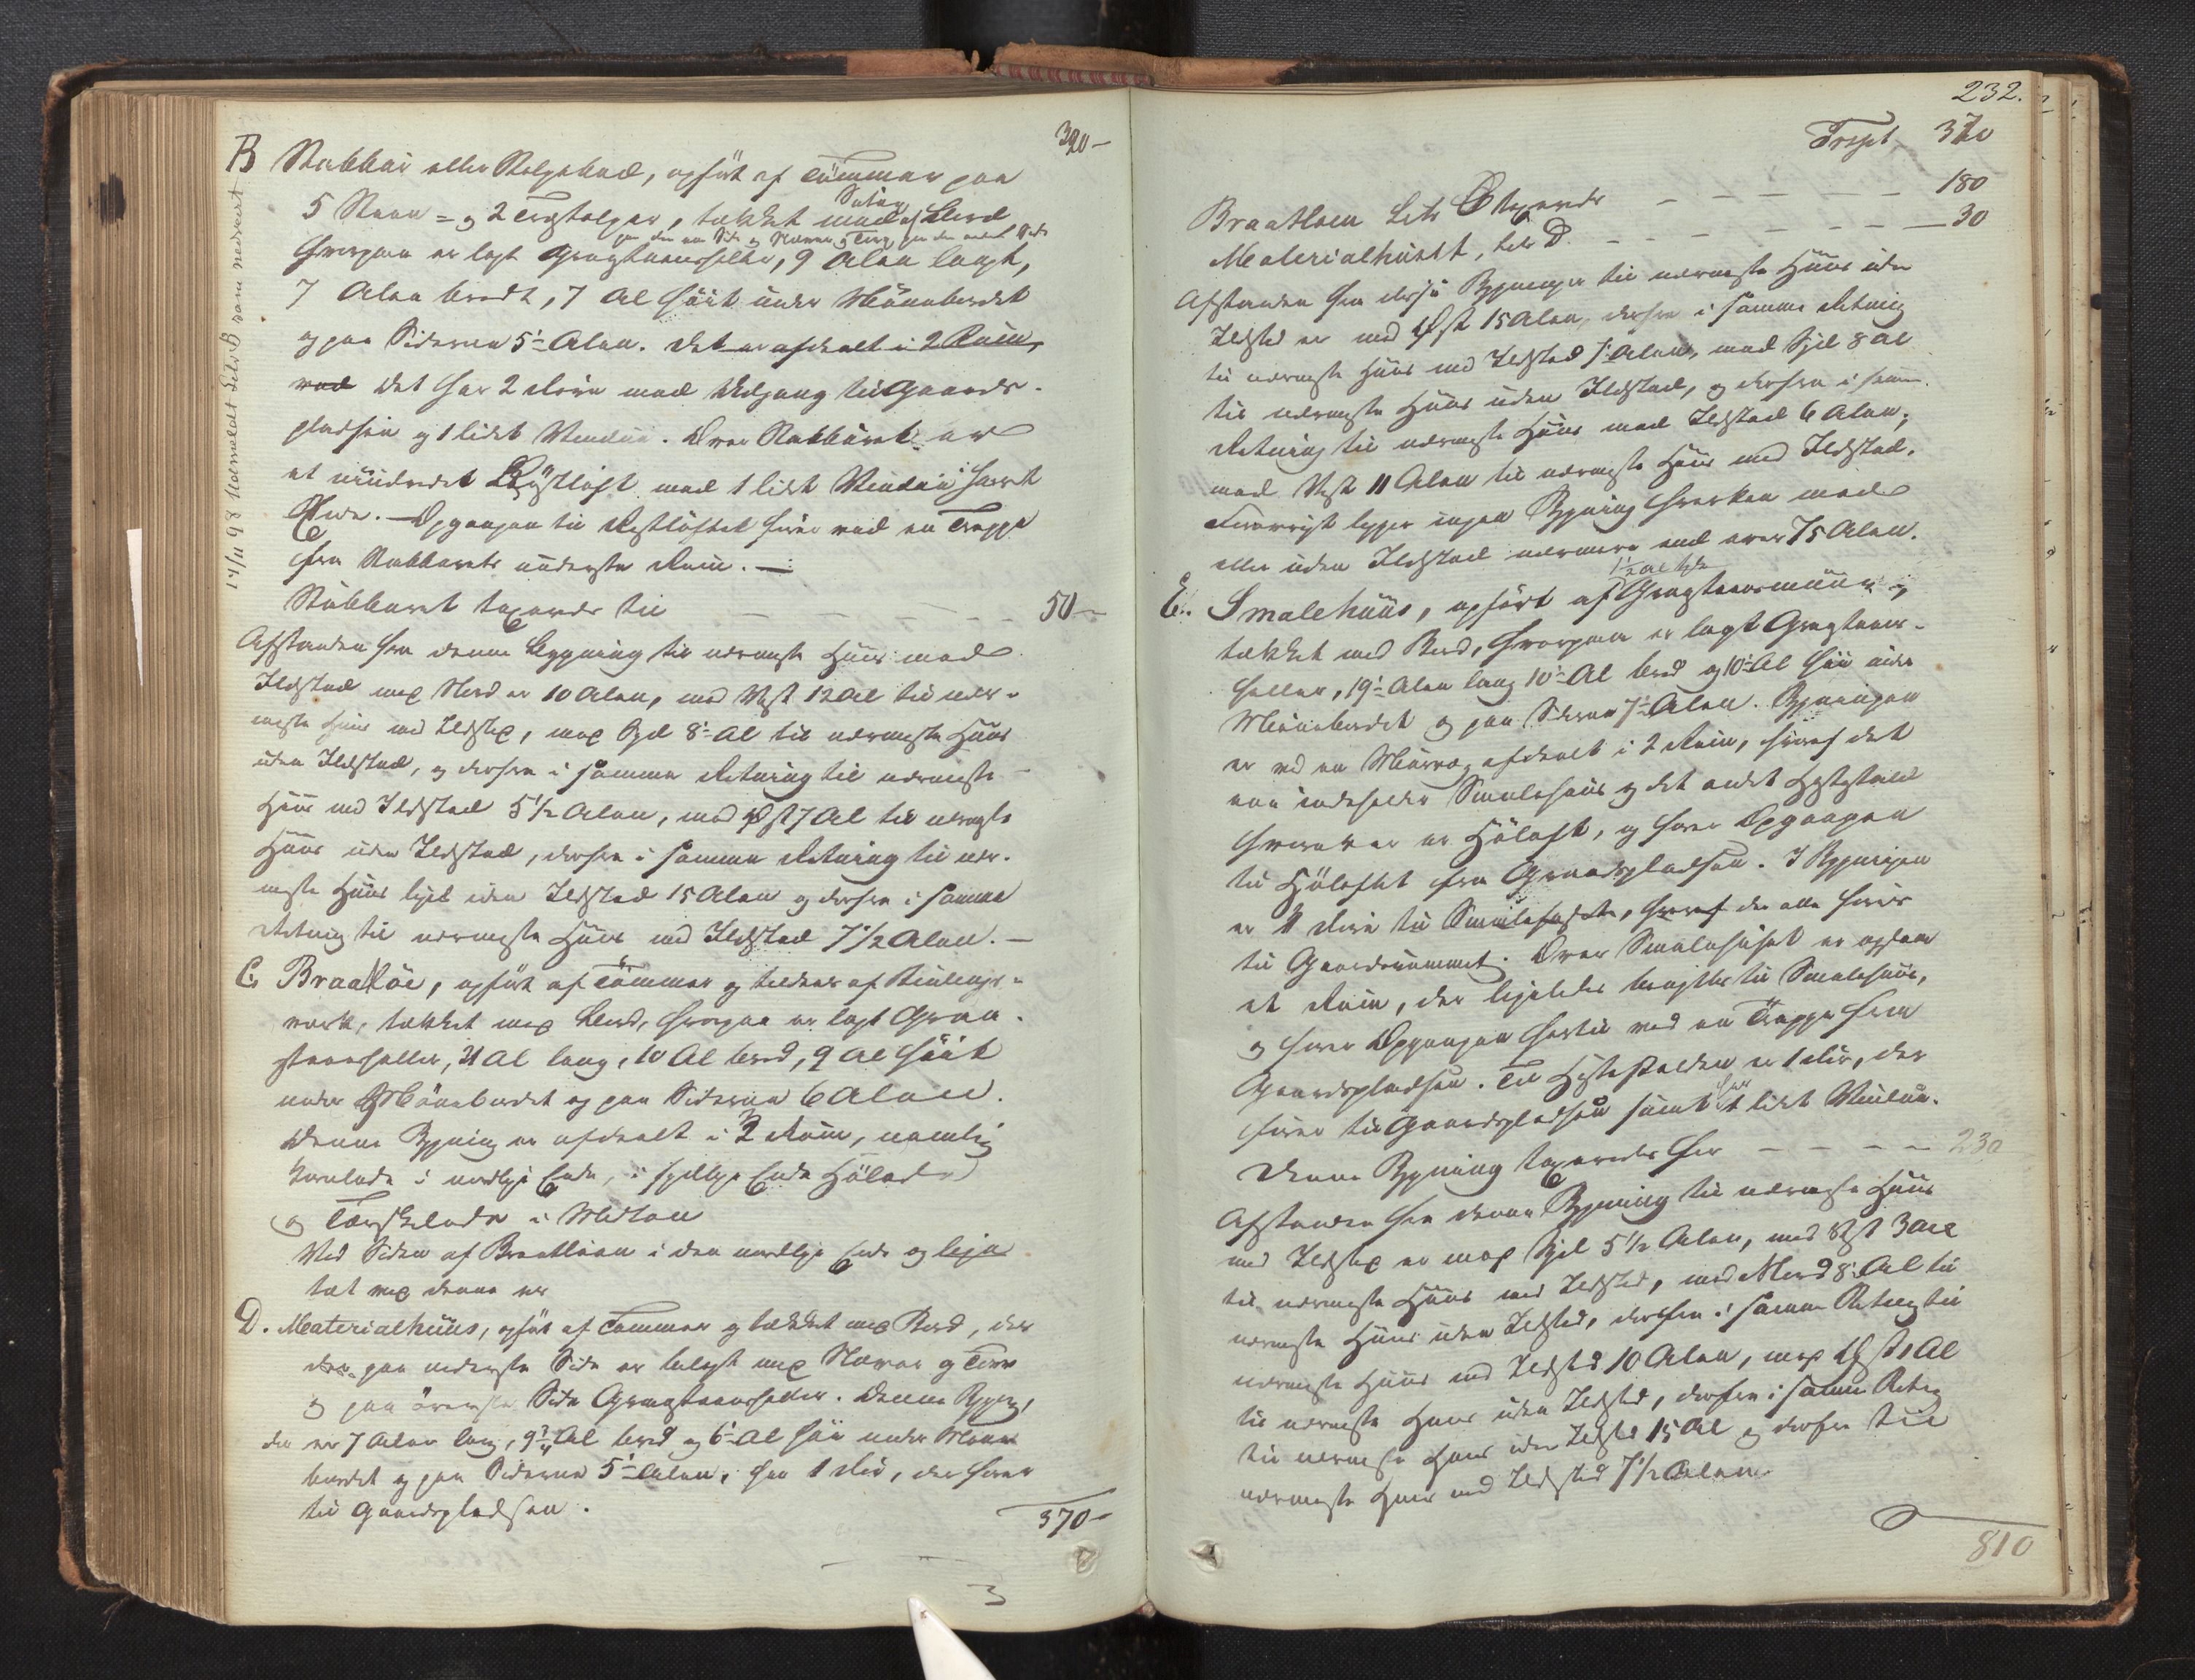 320-
B Stabbur eller Stolpebod, opført af Tømmer paa
5 Steen= og 2 Træstolper, tækket med Sutag af Bord
paa den ene Side og Næver og Torv paa den anden Side
hvorpaa er lagt Graasteenheller, 9 Alen langt,
7 Alen bredt, 7 Al høit under Mønebordet
og paa Siderne 5½ Alen. Det er afdeelt i 2 Rum,
ved det har 2 Døre med Udgang til Gaards-
pladsen og 1 lidet Vindue. Over Stabburet er
et uindredet Røstloft med 1 lidet Vindue i hver
Ende. — Opgangen til Røstloftet sker ved en Trappe
fra Stabburets underste Rum. —
Stabburet taxeres til — — — 50-
Afstanden fra denne Bygning til nærmeste Huus med
Ildsted mod Nord er 10 Alen, mod Vest 12 Al til nær-
meste Huus med Ildsted, mod Syd 8½ Al til nærmeste Huus
uden Ildsted, og derfra i samme Retning til nærmeste
Huus med Ildsted 5½ Alen, mod Øst 7 Al til nærmeste
Huus uden Ildsted, derfra i samme Retning til nær-
meste Huus ligel. uden Ildsted 15 Alen og derfra i samme
Retning til nærmeste Huus med Ildsted 7½ Alen. —
C. Braatløe, opført af Tømmer og tildeels af Bindings-
værk, tækket med Bord, hvorpaa er lagt Graa-
steenheller, 21 Al lang, 10 Al bred, 9 Al høit
under Mønebordet og paa Siderne 6 Alen.
Denne Bygning er afdeelt i 3 Rum, nemlig
Kornlade i nordlige Ende, i sydlige Ende Hølade
og Tærskelade i Midten
Ved Siden af Braatløen i den nordlige Ende og lige
tæt ved denne er
D. Materialhuus, opført af Tømmer og tækket med Bord, der
paa nederste Side er belagt med Næver og Torv
og paa øverste Side Graasteenheller. Denne Bygning,
der er 7 Alen lang, 9¾ Al bred og 6½ Al høi under Møne
bordet og paa Siderne 5½ Alen, har 1 Dør, der fører
til Gaardspladsen.
370-
17/11 98 Udmeldt Litr B som nedrevet
3
232.
Trspt 370
Braatløen Litr C taxeres — — — — 180
Materialhuset, Litr D. — — — — 30
Afstanden fra disse Bygninger til nærmeste Huus uden
Ildsted er mod Øst 15 Alen, derfra i samme Retning
til nærmeste Huus med Ildsted 7½ Alen, mod Syd 8 Al
til nærmeste Huus uden Ildsted, og derfra i samme
Retning til nærmeste Huus med Ildsted 6 Alen,
mod Vest 11 Alen til nærmeste Huus med Ildsted.
Forøvrigt ligger ingen Bygning hverken med
eller uden Ildsted nærmere end over 75 Alen.
E. Smalehuus, opført af 1½ Al Graasteensmuur og
tækket med Bord, hvorpaa er lagt Graasteens-
heller, 19½ Alen lang 10½ Al bred og 10½ Al høi under
Mønebordet og paa Siderne 7½ Alen. Bygningen
er ved en Muurvæg afdeelt i 2 Rum, hvoraf det
ene indeholder Smalehuus og det andet Hestestald
hvorover er Høloft, og fører Opgangen
til Høloftet fra Gaardspladsen. I Bygningen
er 4 Døre til Smalehuset, hvoraf de alle fører
til Gaardsrummet. Over Smalehuset er ogsaa
et Rum, der ligeledes benyttes til Smalehuus,
og fører Opgangen hertil ved en Trappe fra
Gaardspladsen. Til Hestestalden er 1 Dør, der
fører til Gaardspladsen samt 1 lidet Vindue.
Denne Bygning taxeres for — — — — 230
Afstanden fra denne Bygning til nærmeste Huus
med Ildsted er mod Syd 5½ Alen, mod Vest 3 Al
til nærmeste Huus med Ildsted, mod Nord 8½ Al til
nærmeste Huus uden Ildsted, derfra i samme Retning til
nærmeste Huus med Ildsted 10 Alen, mod Øst Al
til nærmeste Huus uden Ildsted, derfra i samme Retng
til nærmeste Huus uden Ildsted 15 Al og derfra til
nærmeste Huus med Ildsted 7½ Alen.
810